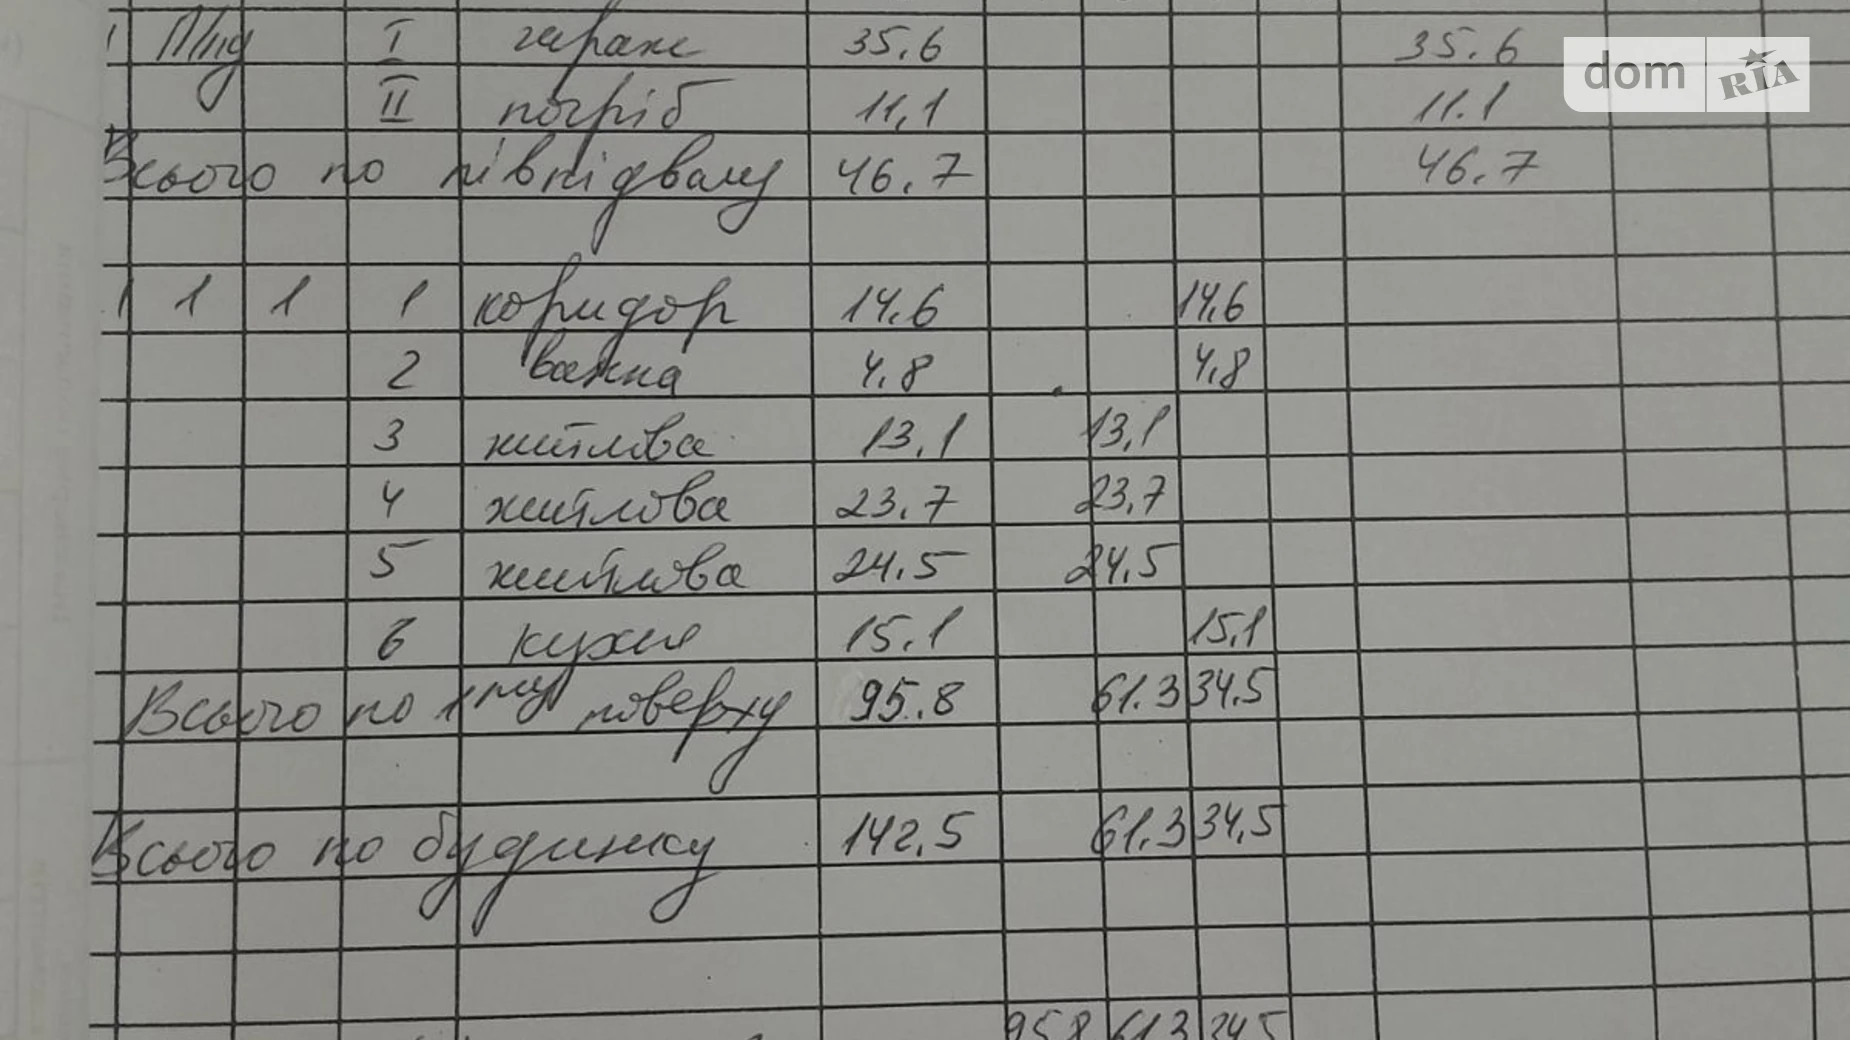 1 П/пд I гараж 35.6 35.6
II погріб 11,1 11.1
Всього по півпідвалу 46.7 46.7
1 1 1 1 коридор 14.6 14,6
2 ванна 4.8 4,8
3 житлова 13,1 13,1
4 житлова 23.7 23,7
5 житлова 24.5 24,5
6 кухня 15.1 15,1
Всього по 1му поверху 95.8 61.3 34,5
Всього по будинку 142.5 61.3 34,5
95.8 61.3 34.5
dom RIA